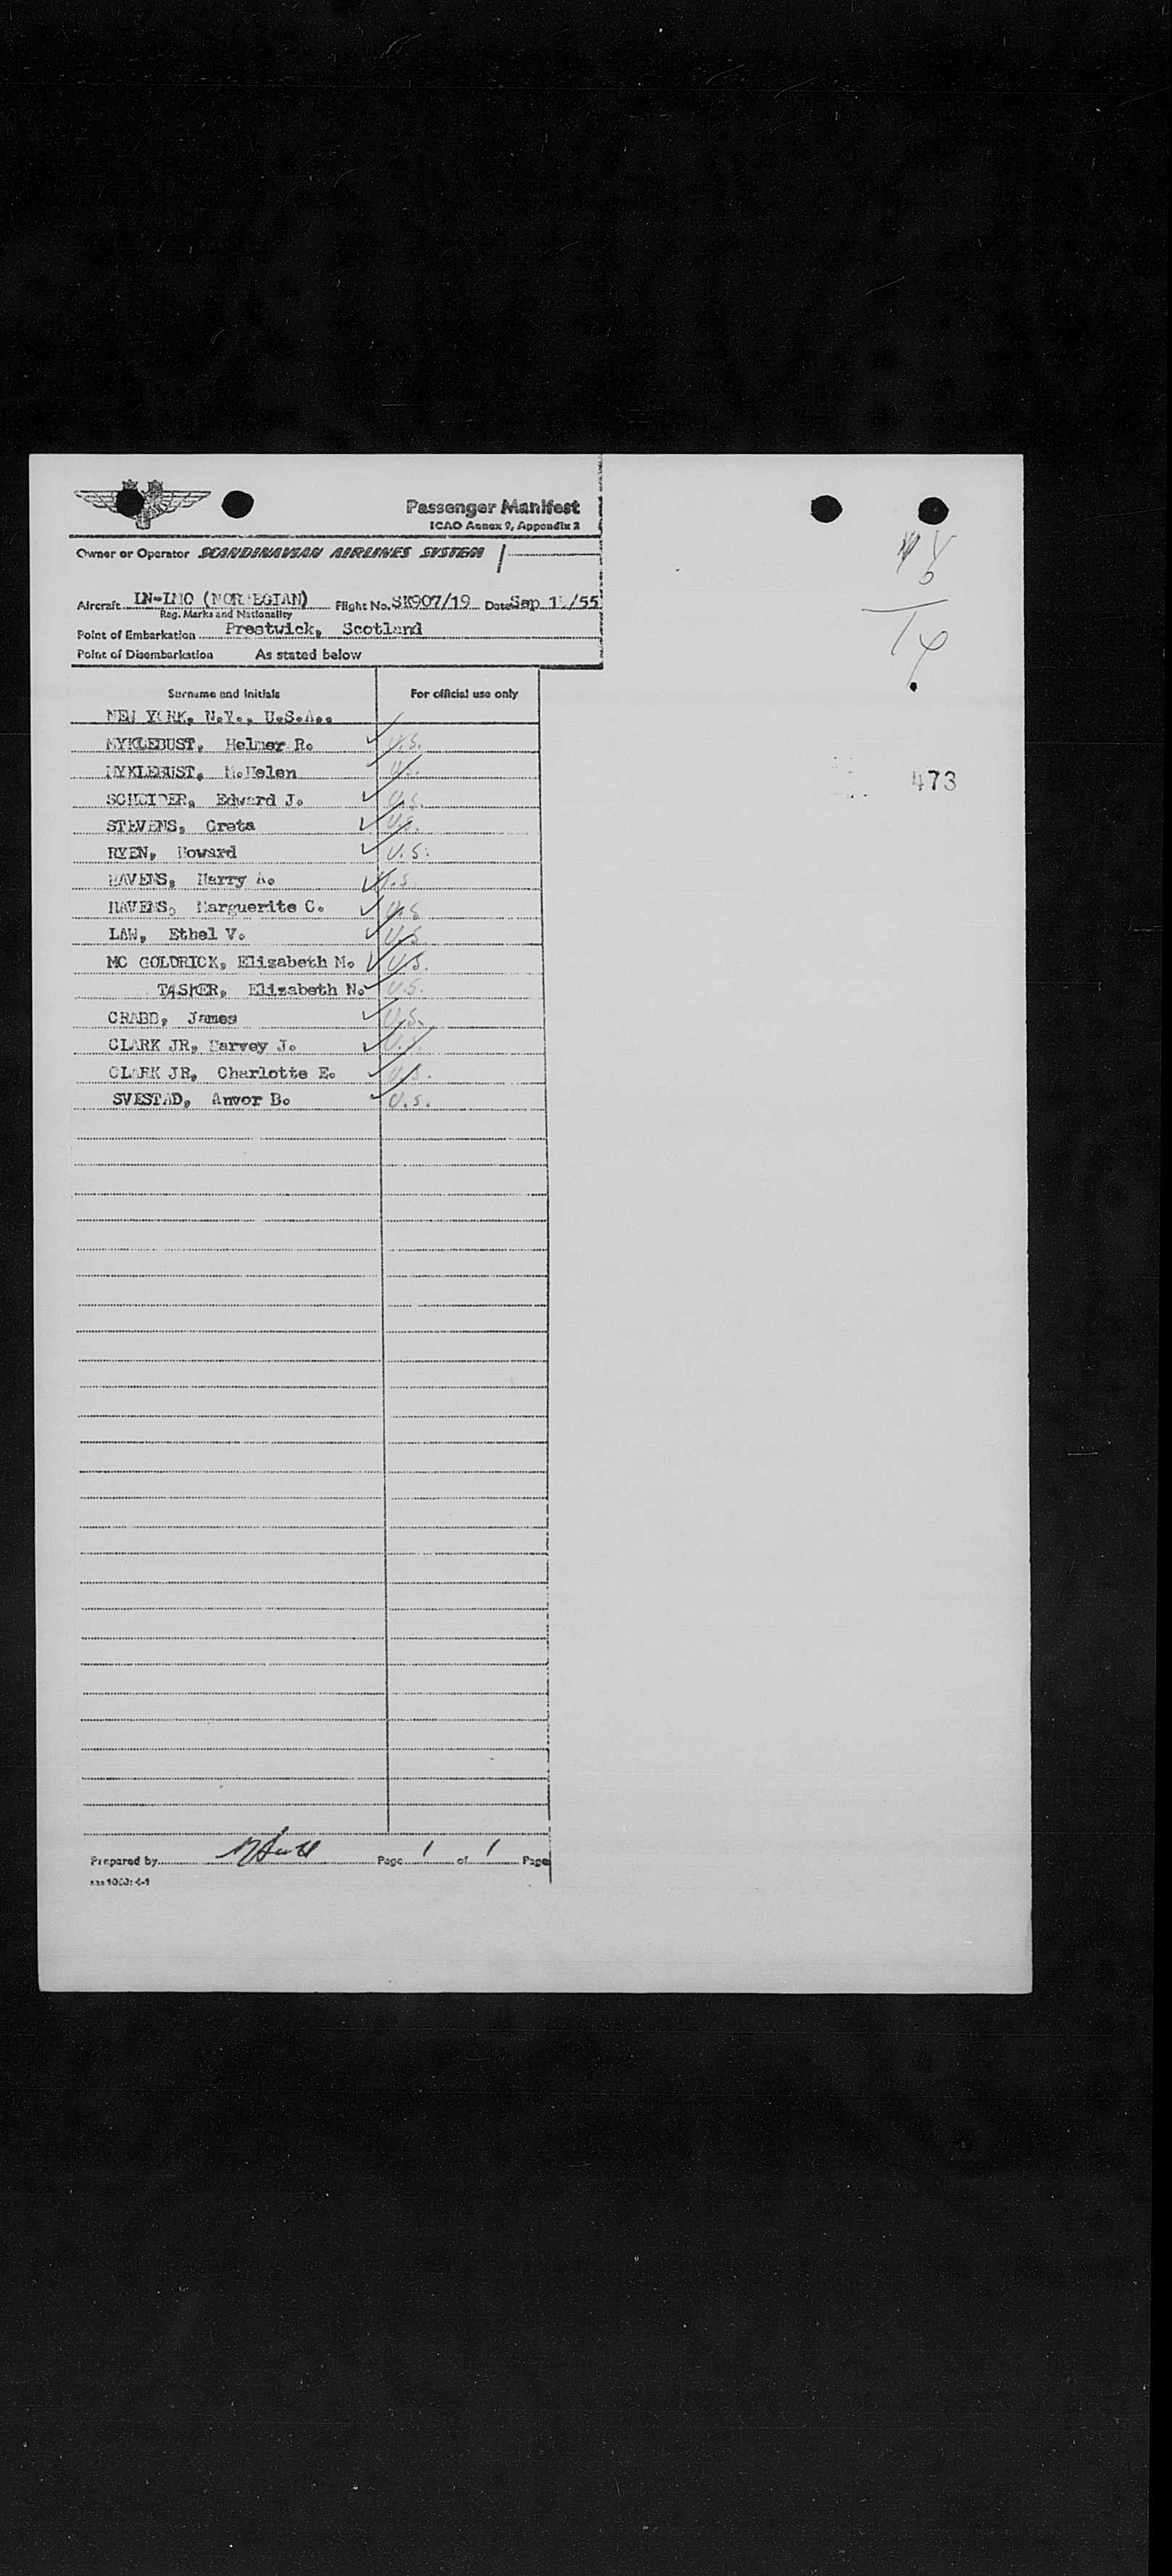 Passenger Manifest
ICAO Annex 9, Appendix 2
Owner or Operator SCANDINAVIAN AIRLINES SYSTEM
Aircraft LN-LMO (NORWEGIAN) Flight No. SK907/19 Date Sep /55
Reg. Marks and Nationality
Point of Embarkation Prestwick, Scotland
Point of Disembarkation As stated below
Surname and Initials For official use only
NEW YORK, N.Y., U.S.A..
MYKLEBUST, Helmer R. U.S.
MYKLEBUST, M.Helen U.S.
Edward J. U.S.
STEVENS, Greta U.S.
RYEN, Howard U.S.
HAVENS, Harry A. U.S.
HAVENS, Marguerite C. U.S
LAW, Ethel V. U.S
MC GOLDRICK, Elizabeth M. U.S.
TASKER, Elizabeth N. U.S.
CRABB, James U.S.
CLARK JR, Harvey J. U.S.
CLARK JR, Charlotte E. U.S.
SVESTAD, Anvor B. U.S.
8
6
14
473
Prepared by Page 1 of 1 Page